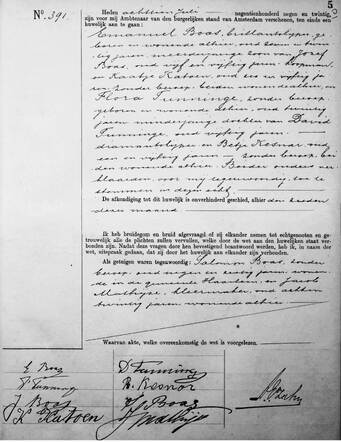 5
No. 391.
Heden achttien Juli negentienhonderd negen en twintig,
zijn voor mij Ambtenaar van den burgerlijken stand van Amsterdam verschenen, ten einde een
huwelijk aan te gaan:
Emanuel Boas, brillantslijper, ge-
boren en wonende alhier, oud een en twin-
tig jaren, meerderjarige zoon van Jozef
Boas, oud vijf en vijftig jaren, koopman,
en Kaatje Katoen, oud zes en vijftig ja-
ren, zonder beroep, beiden wonende alhier, en
Flora Turninge, zonder beroep,
geboren en wonende alhier, oud twintig
jaren, minderjarige dochter van David
Turninge, oud vijftig jaren,
diamantslijper en Betje Kesnor, oud
een en vijftig jaren, zonder beroep, bei-
den wonende alhier. Beider ouders ver-
klaarden, voor mij tegenwoordig, toe te
stemmen in dezen echt.
De afkondiging tot dit huwelijk is onverhinderd geschied, alhier den zeven
dezer maand.
Ik heb bruidegom en bruid afgevraagd of zij elkander nemen tot echtgenooten en
getrouwelijk alle de plichten zullen vervullen, welke door de wet aan den huwelijken staat ver-
bonden zijn. Nadat deze vragen door hen bevestigend beantwoord werden, heb ik, in naam der
wet, uitspraak gedaan, dat zij door het huwelijk aan elkander zijn verbonden.
Als getuigen waren tegenwoordig: Salomon Boas, zonder
beroep, oud negen en zestig jaren, wonen-
de in de gemeente Haarlem, en Jacob
Mathijse, kleermaker, oud
twintig jaren, wonende alhier.
Waarvan akte, welke overeenkomstig de wet is voorgelezen.
E Boas
D. Turninge
F. Turninge
B. Kesnor
J Boas
S Boas
K Katoen
J Mathijse